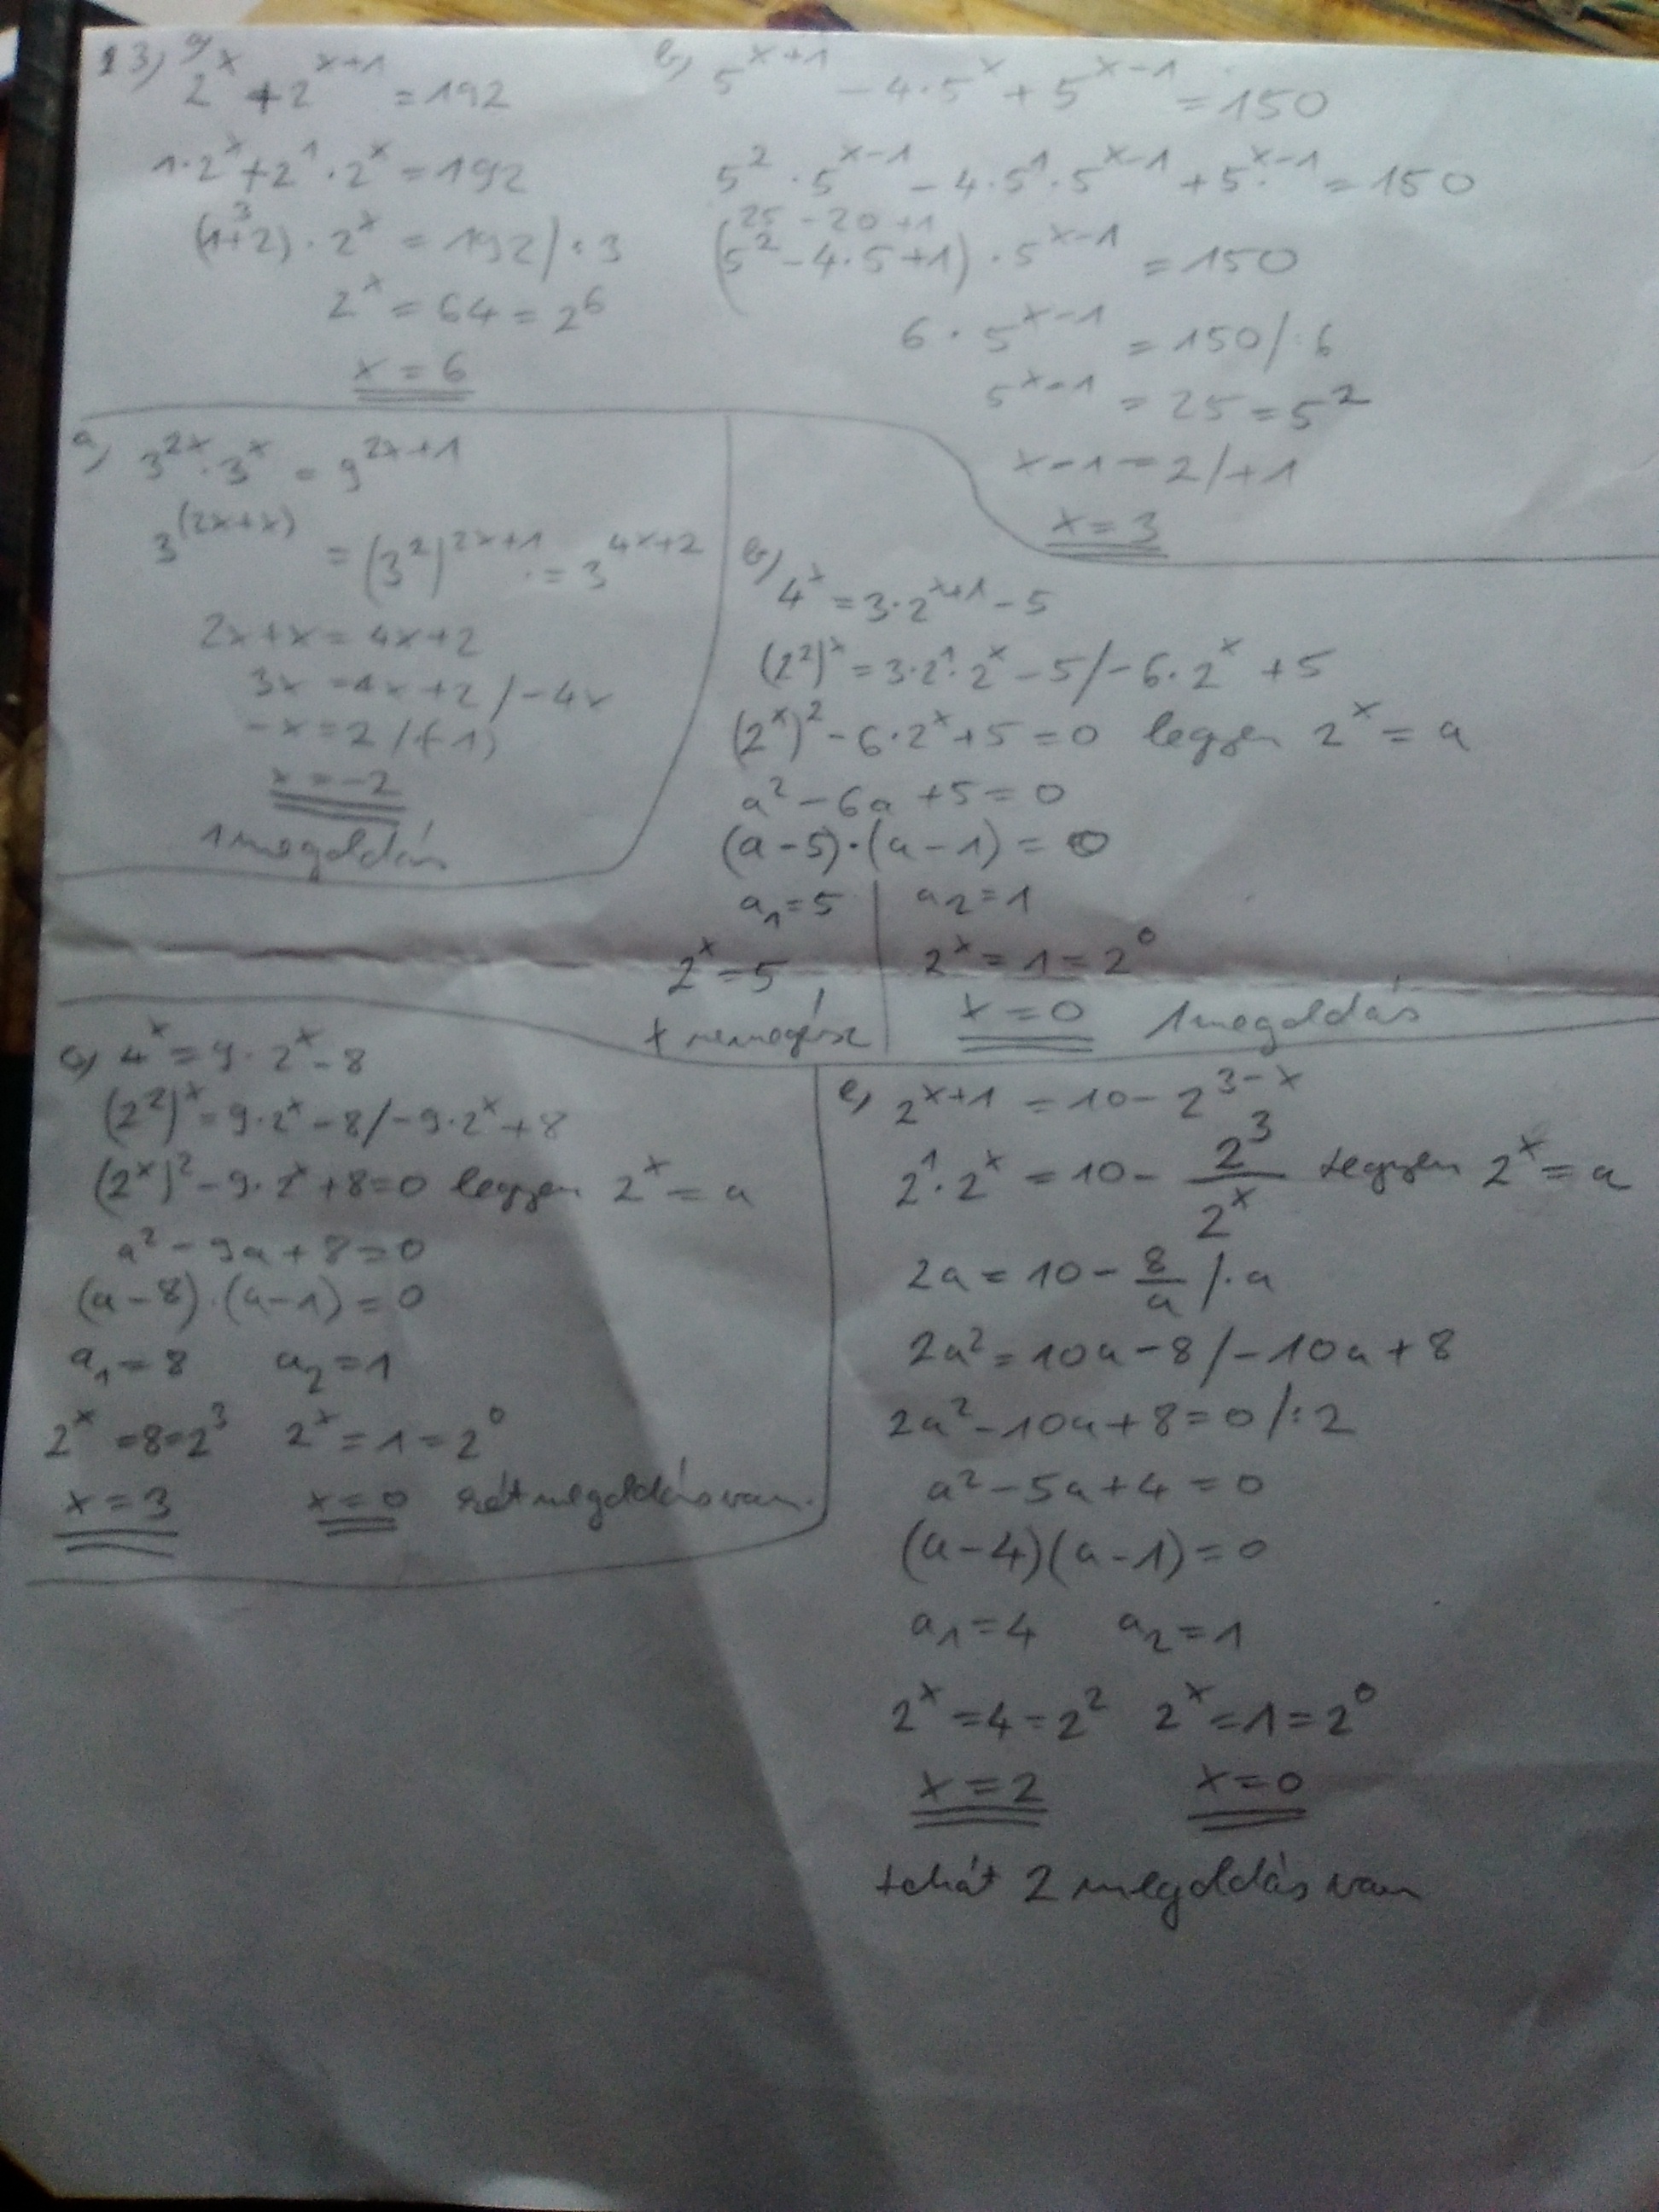 23, a, 2^x + 2^(x+1) = 192
1·2^x + 2^1·2^x = 192
3
(1+2)·2^x = 192 /:3
2^x = 64 = 2^6
x = 6
b, 5^(x+1) - 4·5^x + 5^(x-1) = 150
5^2·5^(x-1) - 4·5^1·5^(x-1) + 5^(x-1) = 150
25 - 20 + 1
(5^2 - 4·5 + 1)·5^(x-1) = 150
6·5^(x-1) = 150 /:6
5^(x-1) = 25 = 5^2
x - 1 = 2 /+1
x = 3
a, 3^(2x)·3^x = 9^(2x+1)
3^(2x+x) = (3^2)^(2x+1) = 3^(4x+2)
2x+x = 4x+2
3x = 4x+2 /-4x
-x = 2 /(-1)
x = -2
1 megoldás
b, 4^x = 3·2^(x+1) - 5
(2^2)^x = 3·2^1·2^x - 5 /-6·2^x + 5
(2^x)^2 - 6·2^x + 5 = 0 legyen 2^x = a
a^2 - 6a + 5 = 0
(a-5)·(a-1) = 0
a_1 = 5 | a_2 = 1
2^x = 5 | 2^x = 1 = 2^0
x nem egész | x = 0 1 megoldás
c, 4^x = 9·2^x - 8
(2^2)^x = 9·2^x - 8 /-9·2^x + 8
(2^x)^2 - 9·2^x + 8 = 0 legyen 2^x = a
a^2 - 9a + 8 = 0
(a-8)·(a-1) = 0
a_1 = 8 a_2 = 1
2^x = 8 = 2^3 2^x = 1 = 2^0
x = 3 x = 0 két megoldás van.
e, 2^(x+1) = 10 - 2^(3-x)
2^1·2^x = 10 - 2^3/2^x legyen 2^x = a
2a = 10 - 8/a /·a
2a^2 = 10a - 8 /-10a + 8
2a^2 - 10a + 8 = 0 /:2
a^2 - 5a + 4 = 0
(a-4)(a-1) = 0
a_1 = 4 a_2 = 1
2^x = 4 = 2^2 2^x = 1 = 2^0
x = 2 x = 0
tehát 2 megoldás van